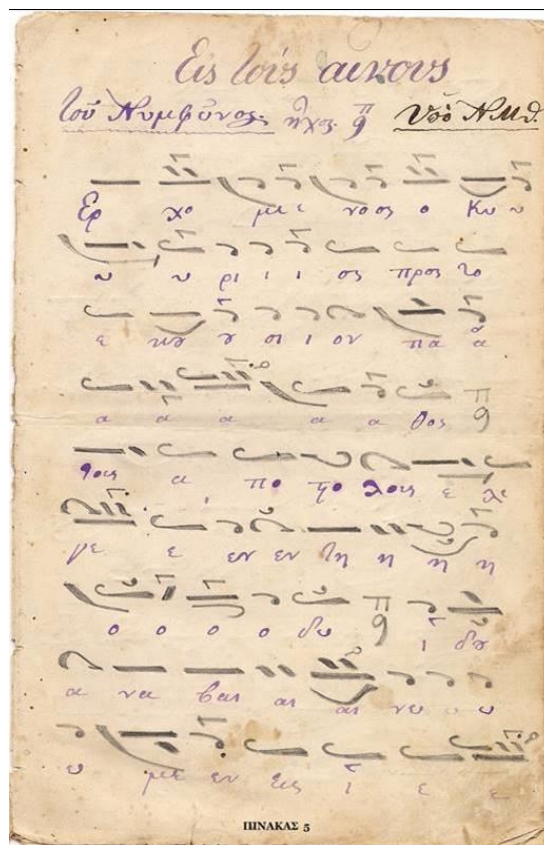 Εις τους αινους
τοῦ Νυμφῶνος. ἦχος π
Ερ χο με ε νο ος ο Κυ υ
υ υ ρι ι ι ος προς το
ε κȣ ȣ σι ι ον πα α
α α α α α θος π
τοις α πο στο λοις ε λε
γε ε εν εν τη η η η
ο ο ο ο δω π ι δȣ
α να βαι αι αι νο ο ο
ο με εν εις Ι ε ε
ΠΙΝΑΚΑΣ 5